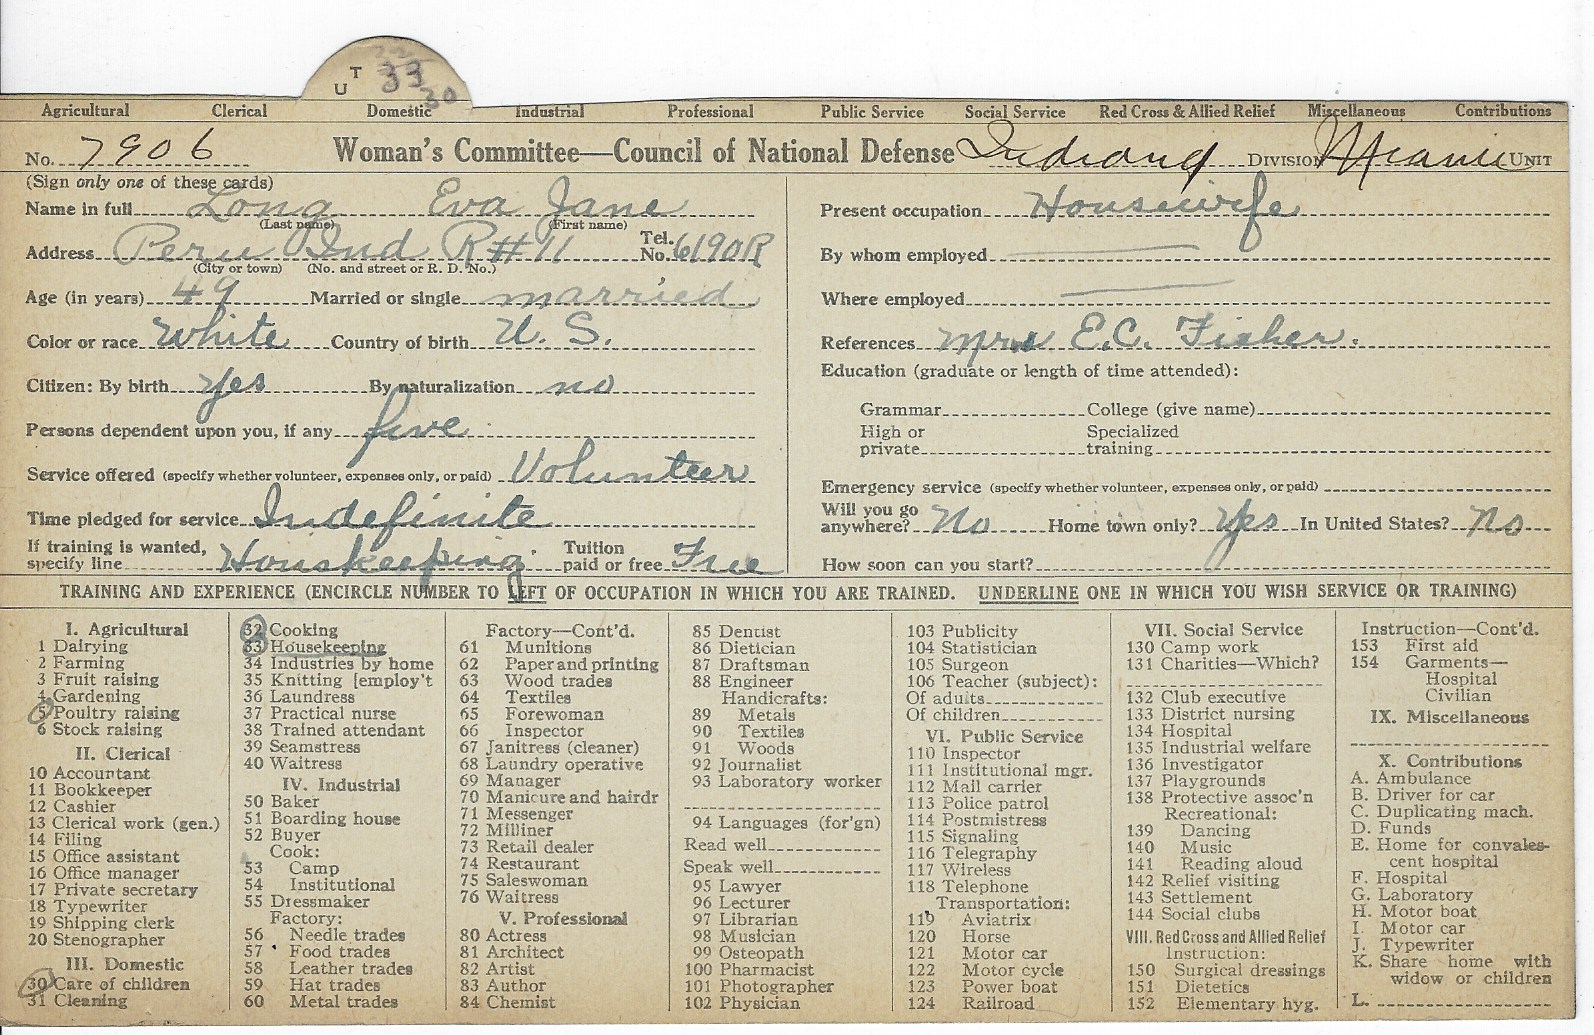 T
U 33
30
Agricultural Clerical Domestic Industrial Professional Public Service Social Service Red Cross & Allied Relief Miscellaneous Contributions
No. 7906 Woman's Committee—Council of National Defense Indiana DIVISION Miami UNIT
(Sign only one of these cards)
Name in full Long Eva Jane
(Last name) (First name)
Address Peru Ind R#11 Tel. No. 6190R
(City or town) (No. and street or R. D. No.)
Age (in years) 49 Married or single married
Color or race White Country of birth U. S.
Citizen: By birth yes By naturalization no
Persons dependent upon you, if any five
Service offered (specify whether volunteer, expenses only, or paid) Volunteer
Time pledged for service Indefinite
If training is wanted, specify line Houskeeping Tuition paid or free Free
Present occupation Housewife
By whom employed
Where employed
References Mrs E.C. Fisher.
Education (graduate or length of time attended):
Grammar College (give name)
High or private Specialized training
Emergency service (specify whether volunteer, expenses only, or paid)
Will you go anywhere? No Home town only? Yes In United States? No
How soon can you start?
TRAINING AND EXPERIENCE (ENCIRCLE NUMBER TO LEFT OF OCCUPATION IN WHICH YOU ARE TRAINED. UNDERLINE ONE IN WHICH YOU WISH SERVICE OR TRAINING)
I. Agricultural
1 Dairying
2 Farming
3 Fruit raising
4 Gardening
5 Poultry raising
6 Stock raising
II. Clerical
10 Accountant
11 Bookkeeper
12 Cashier
13 Clerical work (gen.)
14 Filing
15 Office assistant
16 Office manager
17 Private secretary
18 Typewriter
19 Shipping clerk
20 Stenographer
III. Domestic
30 Care of children
31 Cleaning
32 Cooking
33 Housekeeping
34 Industries by home
35 Knitting [employ't
36 Laundress
37 Practical nurse
38 Trained attendant
39 Seamstress
40 Waitress
IV. Industrial
50 Baker
51 Boarding house
52 Buyer
Cook:
53 Camp
54 Institutional
55 Dressmaker
Factory:
56 Needle trades
57 Food trades
58 Leather trades
59 Hat trades
60 Metal trades
Factory—Cont'd.
61 Munitions
62 Paper and printing
63 Wood trades
64 Textiles
65 Forewoman
66 Inspector
67 Janitress (cleaner)
68 Laundry operative
69 Manager
70 Manicure and hairdr
71 Messenger
72 Milliner
73 Retail dealer
74 Restaurant
75 Saleswoman
76 Waitress
V. Professional
80 Actress
81 Architect
82 Artist
83 Author
84 Chemist
85 Dentist
86 Dietician
87 Draftsman
88 Engineer
Handicrafts:
89 Metals
90 Textiles
91 Woods
92 Journalist
93 Laboratory worker
94 Languages (for'gn)
Read well
Speak well
95 Lawyer
96 Lecturer
97 Librarian
98 Musician
99 Osteopath
100 Pharmacist
101 Photographer
102 Physician
103 Publicity
104 Statistician
105 Surgeon
106 Teacher (subject):
Of adults
Of children
VI. Public Service
110 Inspector
111 Institutional mgr.
112 Mail carrier
113 Police patrol
114 Postmistress
115 Signaling
116 Telegraphy
117 Wireless
118 Telephone
Transportation:
119 Aviatrix
120 Horse
121 Motor car
122 Motor cycle
123 Power boat
124 Railroad
VII. Social Service
130 Camp work
131 Charities—Which?
132 Club executive
133 District nursing
134 Hospital
135 Industrial welfare
136 Investigator
137 Playgrounds
138 Protective assoc'n
Recreational:
139 Dancing
140 Music
141 Reading aloud
142 Relief visiting
143 Settlement
144 Social clubs
VIII. Red Cross and Allied Relief
Instruction:
150 Surgical dressings
151 Dietetics
152 Elementary hyg.
Instruction—Cont'd.
153 First aid
154 Garments—
Hospital
Civilian
IX. Miscellaneous
X. Contributions
A. Ambulance
B. Driver for car
C. Duplicating mach.
D. Funds
E. Home for convales-
cent hospital
F. Hospital
G. Laboratory
H. Motor boat
I. Motor car
J. Typewriter
K. Share home with
widow or children
L.